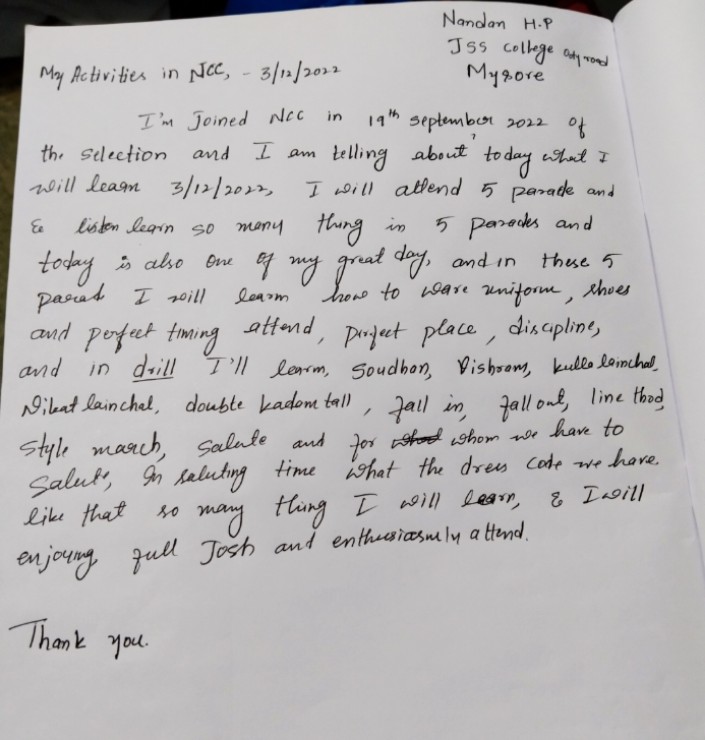 Nandan H.P
JSS college Ooty road
Mysore
My Activities in NCC, - 3/12/2022
I'm Joined NCC in 19th September 2022 of
the selection and I am telling about today what I
will learn 3/12/2022, I will attend 5 parade and
& listen learn so many thing in 5 parades and
today is also one of my great day, and in these 5
parad I will learn how to ware uniform, shoes
and perfect timing attend, perfect place, discipline,
and in drill I'll learm, Soudhan, Vishram, kulla lainchal,
Nikat lainchal, double kadam tall, fall in, fall out, line thod,
style march, Salute and for whom we have to
Salute, In saluting time what the dress code we have.
like that so many thing I will learn, & I will
enjoying full Josh and enthusiasmly attend.
Thank you.